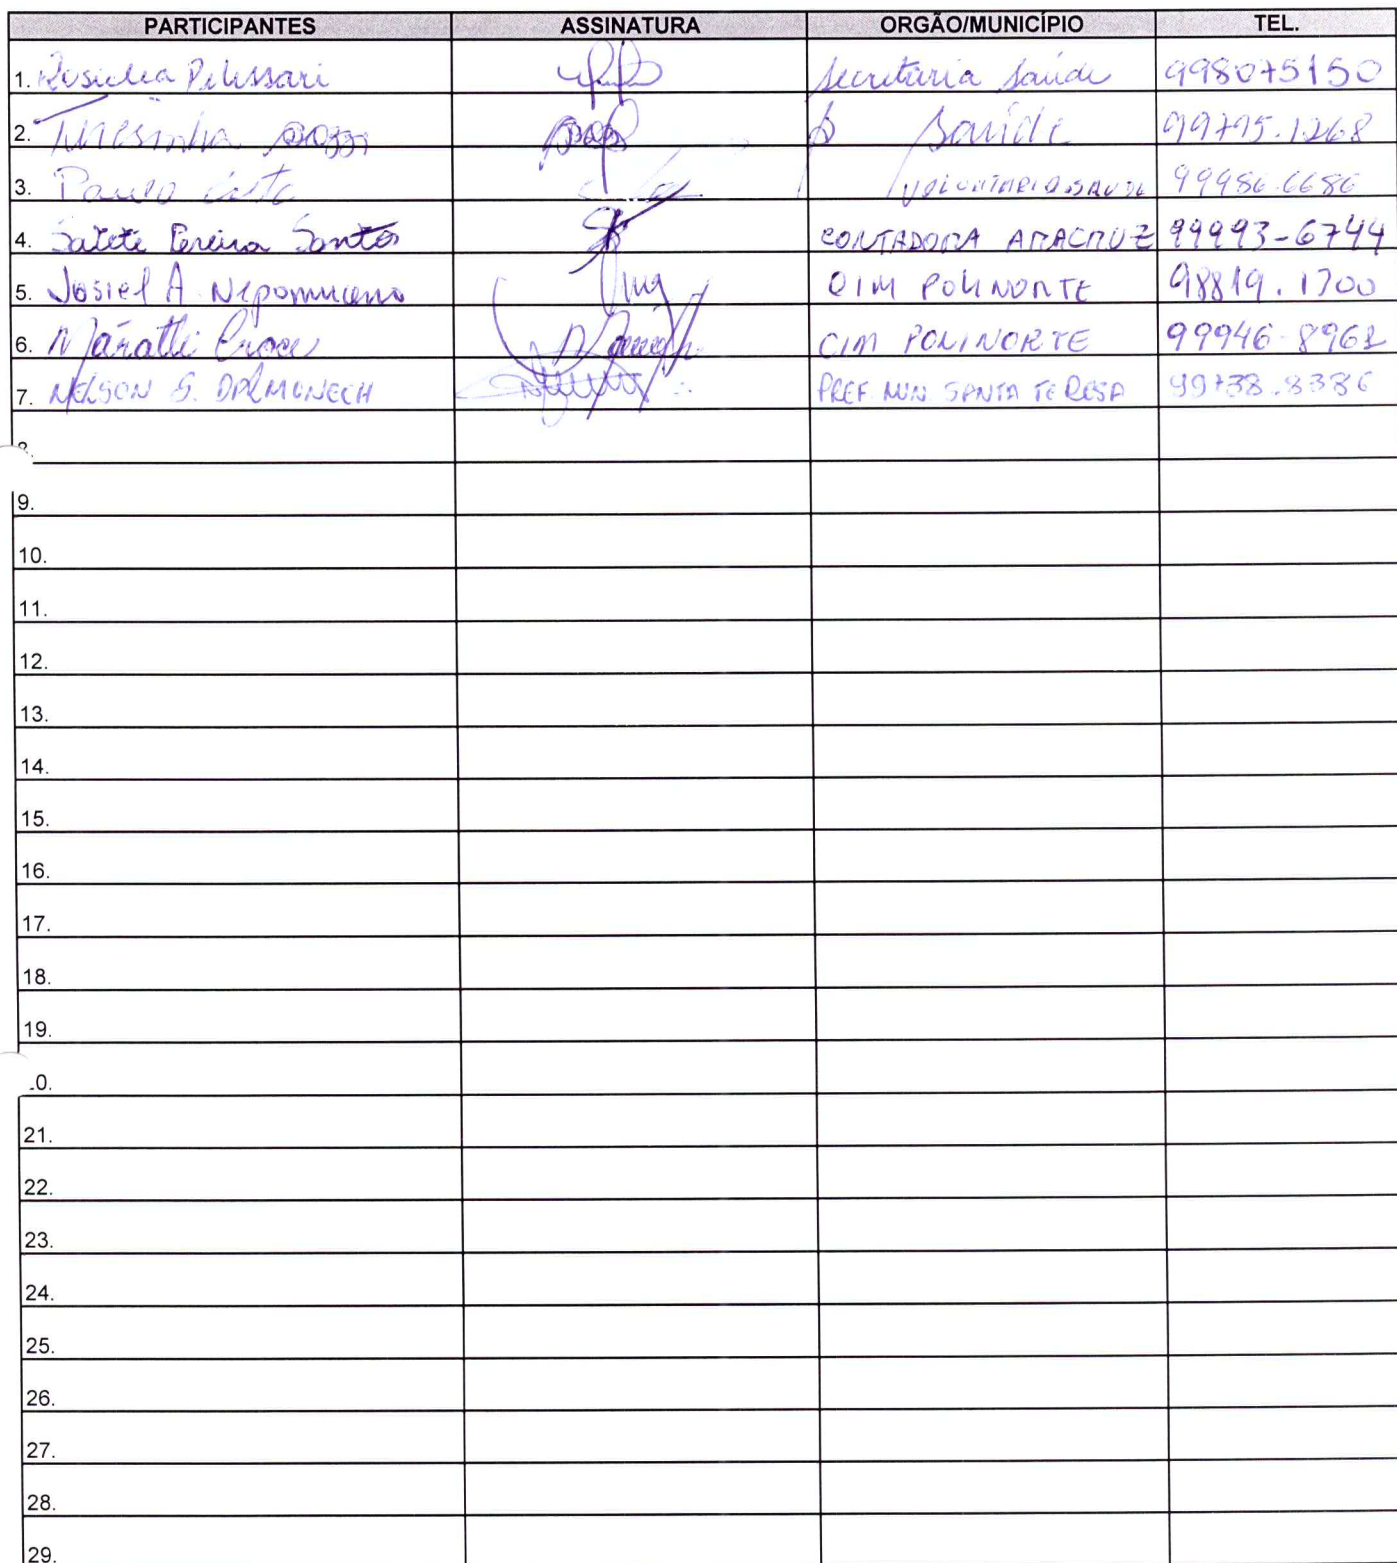 PARTICIPANTES ASSINATURA ORGÃO/MUNICÍPIO TEL.
1. Rosiclea Pelissari Secretaria Saúde 998075150
2. Teresinha Saúde 99795.1268
3. Paulo VOLUNTARIO SAUDE 99986.6686
4. Salete Pereira Santos CONTADORA ARACRUZ 99993-6744
5. Josiel A. Nepomuceno CIM POLINORTE 98819.1700
6. Maratti Croce CIM POLINORTE 99946-8962
7. NELSON S. DALMONECH PREF. MUN. SANTA TERESA 99738.8386
8.
9.
10.
11.
12.
13.
14.
15.
16.
17.
18.
19.
0.
21.
22.
23.
24.
25.
26.
27.
28.
29.